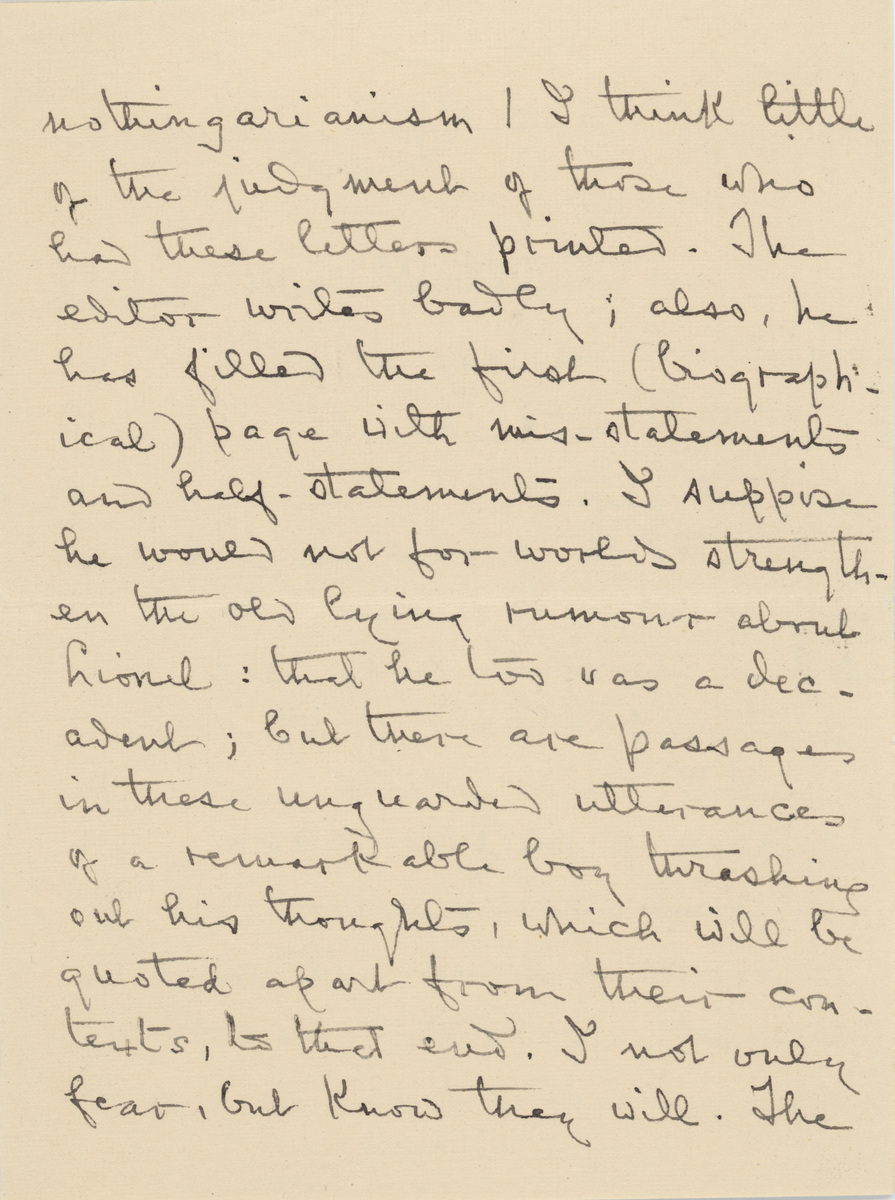 nothingarianism! I think little
of the judgment of those who
had these letters printed. The
editor writes badly; also, he
has filled the first (biograph-
ical) page with mis-statements
and half-statements. I suppose
he would not for worlds strength-
en the old lying rumour about
Lionel: that he too was a dec-
adent; but there are passages
in these unguarded utterances
of a remarkable boy thrashing
out his thoughts, which will be
quoted apart from their con-
texts, to that end. I not only
fear, but know they will. The